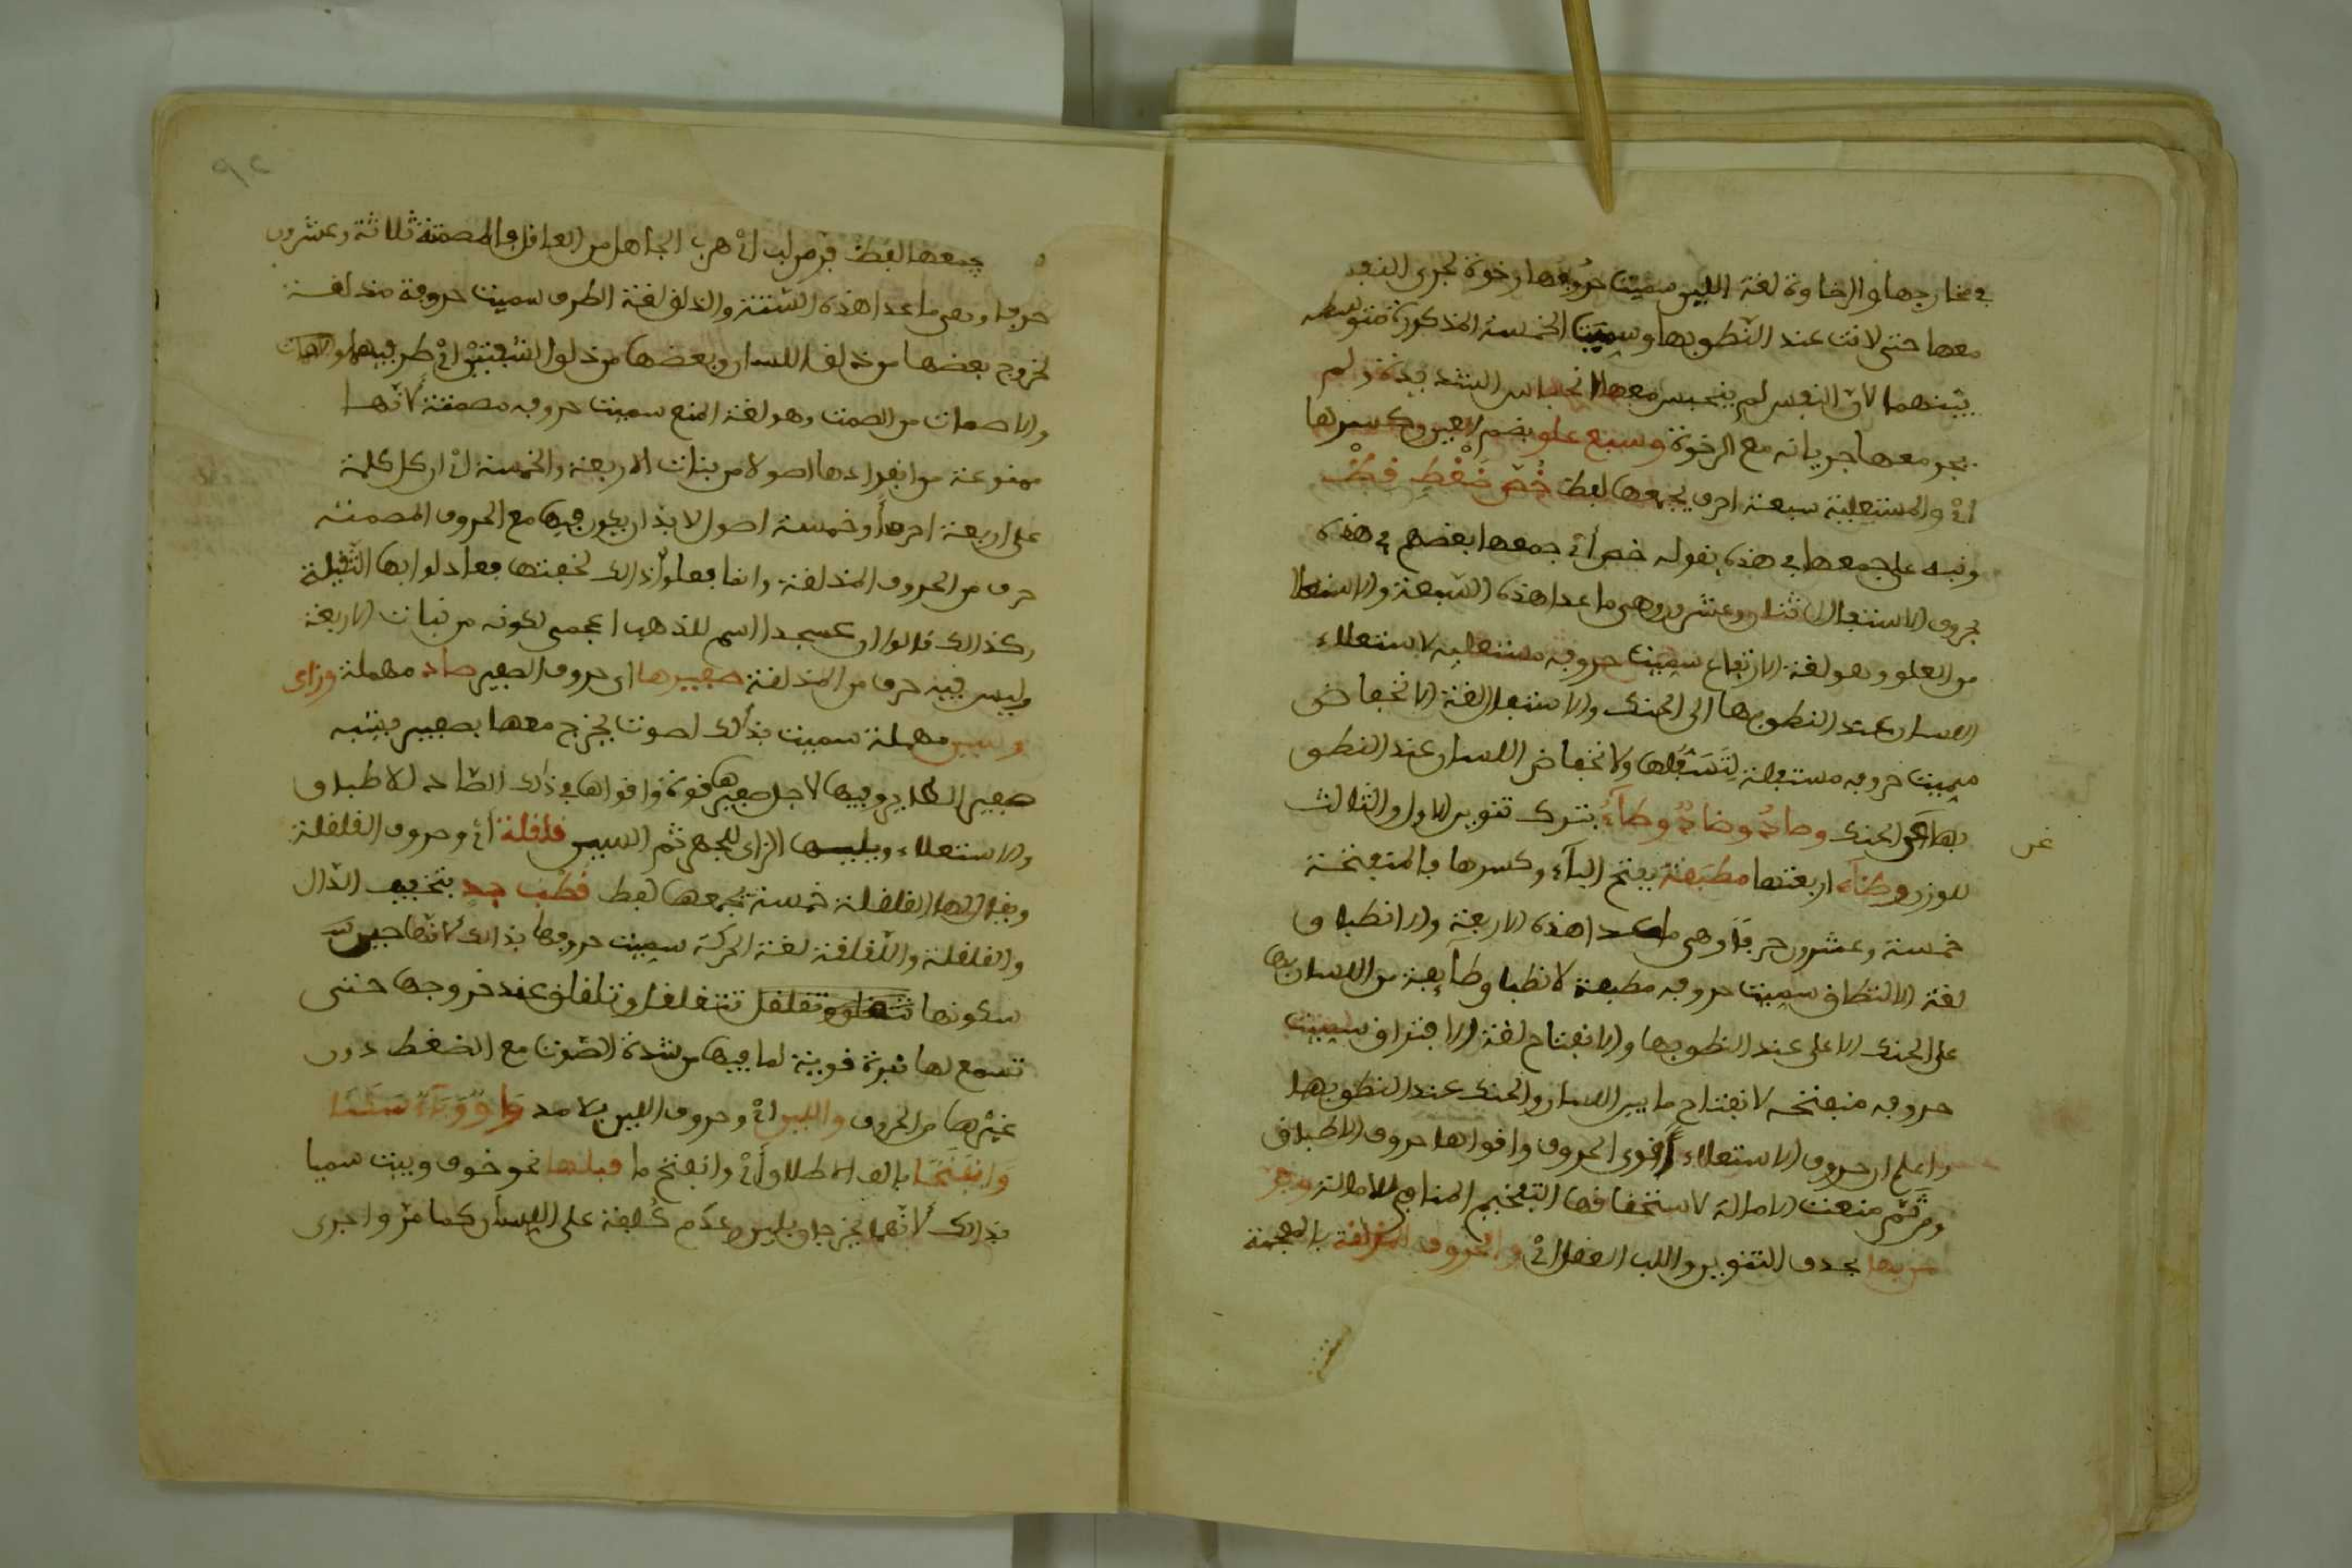 في مخارجها والرخاوة لغة اللين سميت حروفها رخوة لجرى النفس
معها حتى لانت عند النطق بها وسميت الخمسة المذكورة متوسطة
بينهما لان النفس لم ينحبس معها انحباس الشديدة ولم
يجر معها جريانه مع الرخوة وسبع علو بضم العين وكسرها
اي والمستعلية سبعة احرف يجمعها لفظ خص ضغط قظ
ونبه على جمعها في هذه بقوله خص أي جمعها بعضهم في هذه
فحروف الاستفال اثنان وعشرون وهي ما عدا هذه السبعة والاستعلا
من العلو وهو لغة الارتفاع سميت حروفه مستعلية لاستعلاء
اللسان عند النطق بها الى الحنك والاستفال لغة الانخفاض
سميت حروفه مستفلة لتسفلها ولانخفاض اللسان عند النطق
بها عن الحنك وصاد وضاد وطاء بترك تنوين الاول والثالث
غن
للوزن وظاء اربعتها مطبقة بفتح الباء وكسرها فالمنفتحة
خمسة وعشرون حرفا وهي ما عدا هذه الاربعة والانطباق
لغة الالتصاق سميت حروفه مطبقة لانطباق طائفة من اللسان بها
على الحنك الاعلى عند النطق بها والانفتاح لغة الافتراق سميت
حروفه منفتحة لانفتاح ما بين اللسان والحنك عند النطق بها
واعلم ان حروف الاستعلاء أقوى الحروف واقواها حروف الاطباق
ومن ثم منعت الامالة لاستحقاقها التفخيم المنافي للامالة وفر
من لب بحذف التنوين واللب العقل اي والحروف المذلقة بالمعجمة
٩٢
يجمعها لفظ فر من لب اي هرب الجاهل من العاقل والمصمتة ثلاثة وعشرون
حرفا وهي ما عدا هذه الستة والذلق لغة الطرف سميت حروفه مذلقة
لخروج بعضها من ذلق اللسان وبعضها من ذلق الشفتين اي طرفيهما
والاصمات من الصمت وهو لغة المنع سميت حروفه مصمتة لانها
ممنوعة من انفرادها اصولا من بنات الاربعة والخمسة اي ان كل كلمة
على اربعة احرف أو خمسة اصول لا بد ان يكون فيها مع الحروف المصمتة
حرف من الحروف المذلقة وانما فعلوا ذالك لخفتها فعادلوا بها الثقيلة
وكذالك قالوا ان عسجدا اسم للذهب اعجمي لكونه من بنات الاربعة
وليس فيه حرف من المذلقة صفيرها اي حروف الصفير صاد مهملة وزاى
وسين مهملة سميت بذلك لصوت يخرج معها بصفير يشبه
صفير الطاير وفيها لاجل صفيرها قوة واقواها في ذلك الصاد للاطباق
والاستعلاء ويليها الزاى للجهر ثم السين قلقلة أي وحروف القلقلة
ويقال لها القلقلة خمسة يجمعها لفظ قطب جد بتخفيف الدال
والقلقلة واللقلقة لغة الحركة سميت حروفها بذالك لانها حين
سكونها تتقلقل وتتلقلق عند خروجها حتى
تسمع لها نبرة قوية لما فيها من شدة الصوت مع الضغط دون
غيرها من الحروف واللين اي وحروف اللين بلا مد واو وياء سكنا
وانفتحا بالف الاطلاق أي وانفتح ما قبلهما نحو خوف وبيت سميا
بذالك لانهما يخرجان بلين وعدم كلفة على اللسان كما مر واجرى